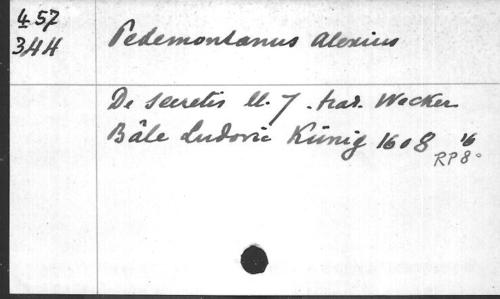 457
344
Pedemontanus Alexius
De secretis ll. 7. trad. Wecker
Bâle Ludovic Künig 1608 16
RP 8°